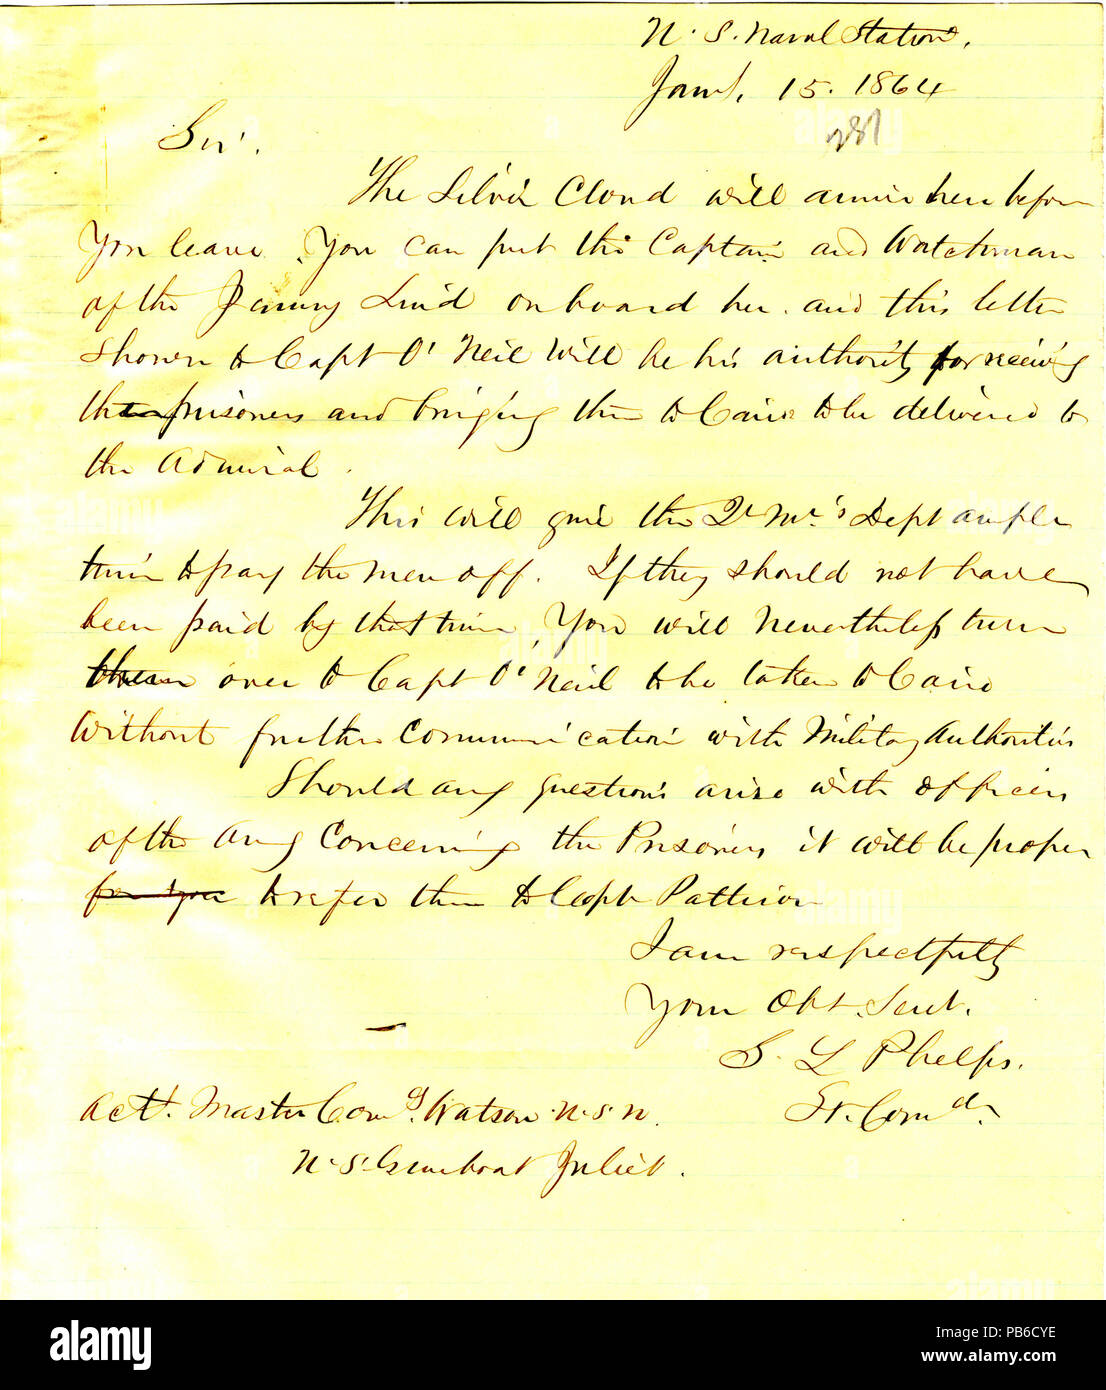 U. S. Naval Station,
Jany. 15. 1864
287
Sir.
The Silver Cloud will arrive here before
you leave. You can put the Captain and Watchman
of the Jenny Lind on board her. and this letter
shown to Capt O'Neil will be his authority for receiving
the prisoners and bringing them to Cairo to be delivered to
the Admiral.
This will give the Qr Mr's Dept ample
time to pay the men off. If they should not have
been paid by that time, You will nevertheless turn
them over to Capt O'Neil to be taken to Cairo
without further communication with Military Authorities
Should any questions arise with officers
of the Army concerning the Prisoners it will be proper
for you to refer them to Capt Pattison
I am respectfully
Your Obt. Servt.
S. L. Phelps.
Lt. Comdr.
Act. Master Comg. Watson U.S.N.
U.S. Gunboat Juliet.
alamy
Image ID: PB6CYE
www.alamy.com